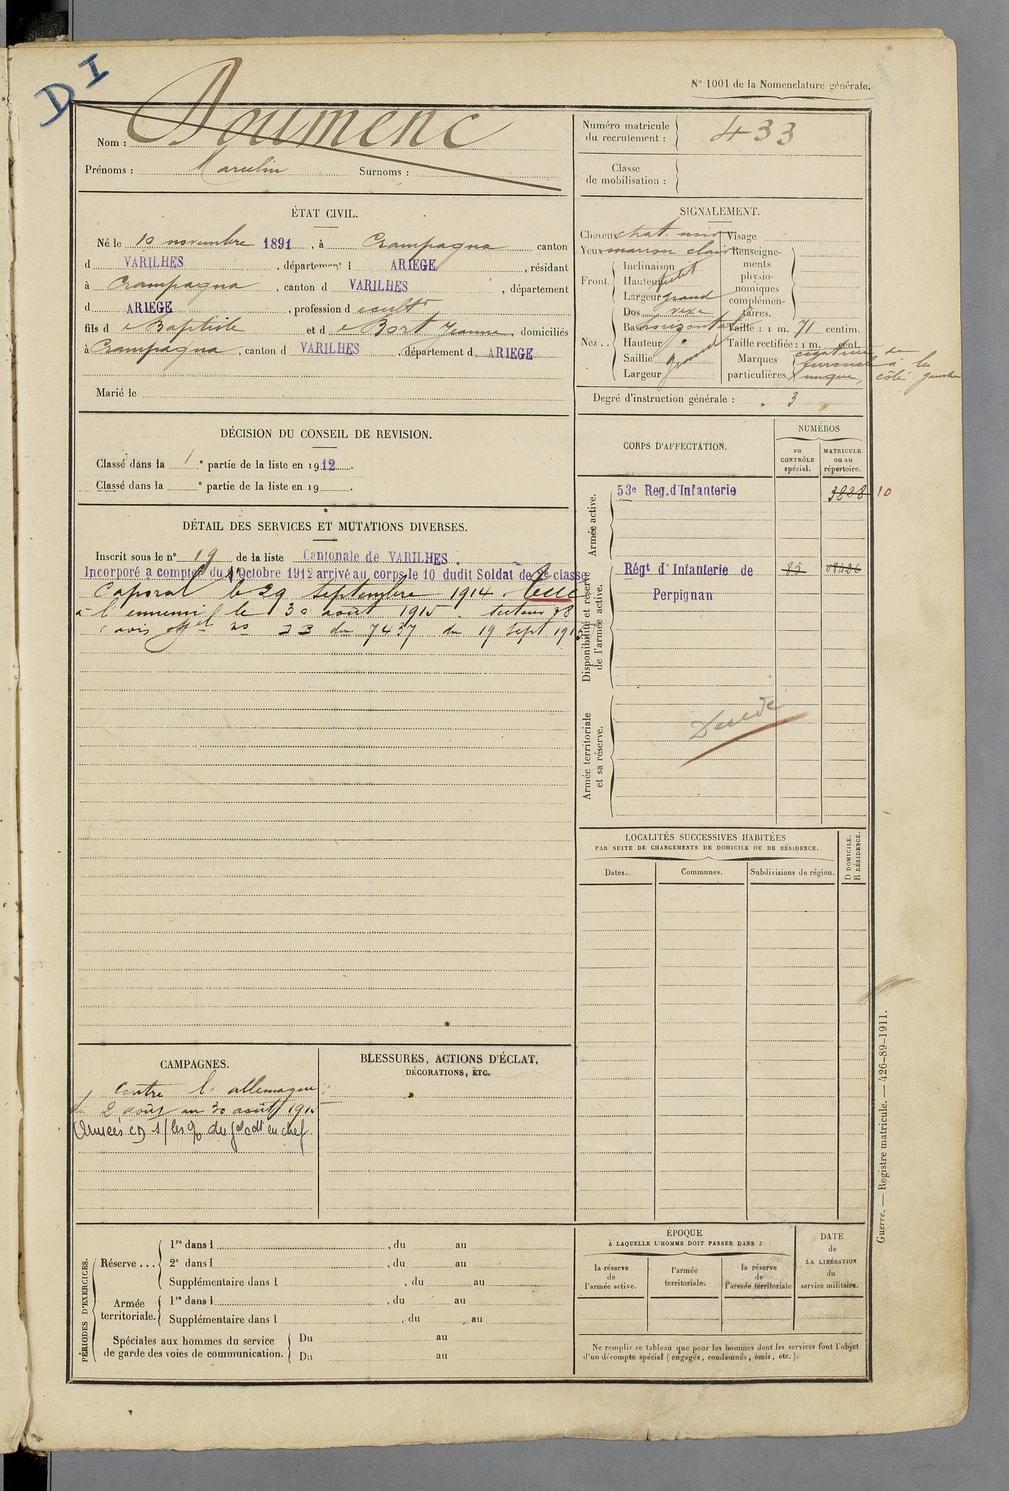 D I
N° 1001 de la Nomenclature générale.
Nom : Doumenc
Prénoms : Marcelin Surnoms :
Numéro matricule du recrutement : 433
Classe de mobilisation :
ÉTAT CIVIL.
Né le 10 novembre 1891, à Crampagna canton
d VARILHES, département d ARIEGE, résidant
à Crampagna, canton d VARILHES, département
d ARIEGE, profession d cultr
fils d e Baptiste et d e Bort Jeanne, domiciliés
à Crampagna, canton d VARILHES, département d ARIEGE
Marié le
SIGNALEMENT.
Cheveux chat. noir Visage
Yeux marron clair
Front. Inclinaison
Hauteur petit
Largeur grand
Nez.. Dos vexe
Base horizontal
Hauteur
Saillie grand
Largeur
Renseignements physionomiques complémentaires.
Taille : 1 m. 71 centim.
Taille rectifiée : 1 m. cent.
Marques particulières. cicatrice de furoncle à la nuque, côté gauche
Degré d'instruction générale : 3
DÉCISION DU CONSEIL DE REVISION.
Classé dans la 1e partie de la liste en 1912.
Classé dans la e partie de la liste en 19 .
CORPS D'AFFECTATION.
NUMÉROS
au CONTRÔLE spécial.
MATRICULE ou au répertoire.
Armée active.
53e Reg. d'Infanterie 3828 10
Disponibilité et réserve de l'armée active.
Régt d'Infanterie de
Perpignan
Armée territoriale et sa réserve.
Décédé
DÉTAIL DES SERVICES ET MUTATIONS DIVERSES.
Inscrit sous le n° 19 de la liste Cantonale de VARILHES.
Incorporé à compter du Octobre 1912 arrivé au corps le 10 dudit Soldat de 2e classe
Caporal le 29 septembre 1914. Tué
à l'ennemi le 30 août 1915. secteur 78
(avis offel n° 23 du 7437 du 19 Sept 1915
LOCALITÉS SUCCESSIVES HABITÉES
PAR SUITE DE CHANGEMENTS DE DOMICILE OU DE RÉSIDENCE.
Dates. Communes. Subdivisions de région. D DOMICILE. R RÉSIDENCE.
CAMPAGNES.
Contre l'allemagne :
du 2 août au 30 août 1915
Armées CD s/ les Q. du gal cdt en chef.
BLESSURES, ACTIONS D'ÉCLAT,
DÉCORATIONS, ETC.
PÉRIODES D'EXERCICES.
Réserve... 1re dans l , du au
2e dans l , du au
Supplémentaire dans l , du au
Armée territoriale. 1re dans l , du au
Supplémentaire dans l , du au
Spéciales aux hommes du service de garde des voies de communication. Du au
Du au
ÉPOQUE
À LAQUELLE L'HOMME DOIT PASSER DANS :
la réserve de l'armée active.
l'armée territoriale.
la réserve de l'armée territoriale
DATE de LA LIBÉRATION du service militaire.
Ne remplir ce tableau que pour les hommes dont les services font l'objet
d'un décompte spécial (engagés, condamnés, omis, etc.).
Guerre. — Registre matricule. — 426-89-1911.